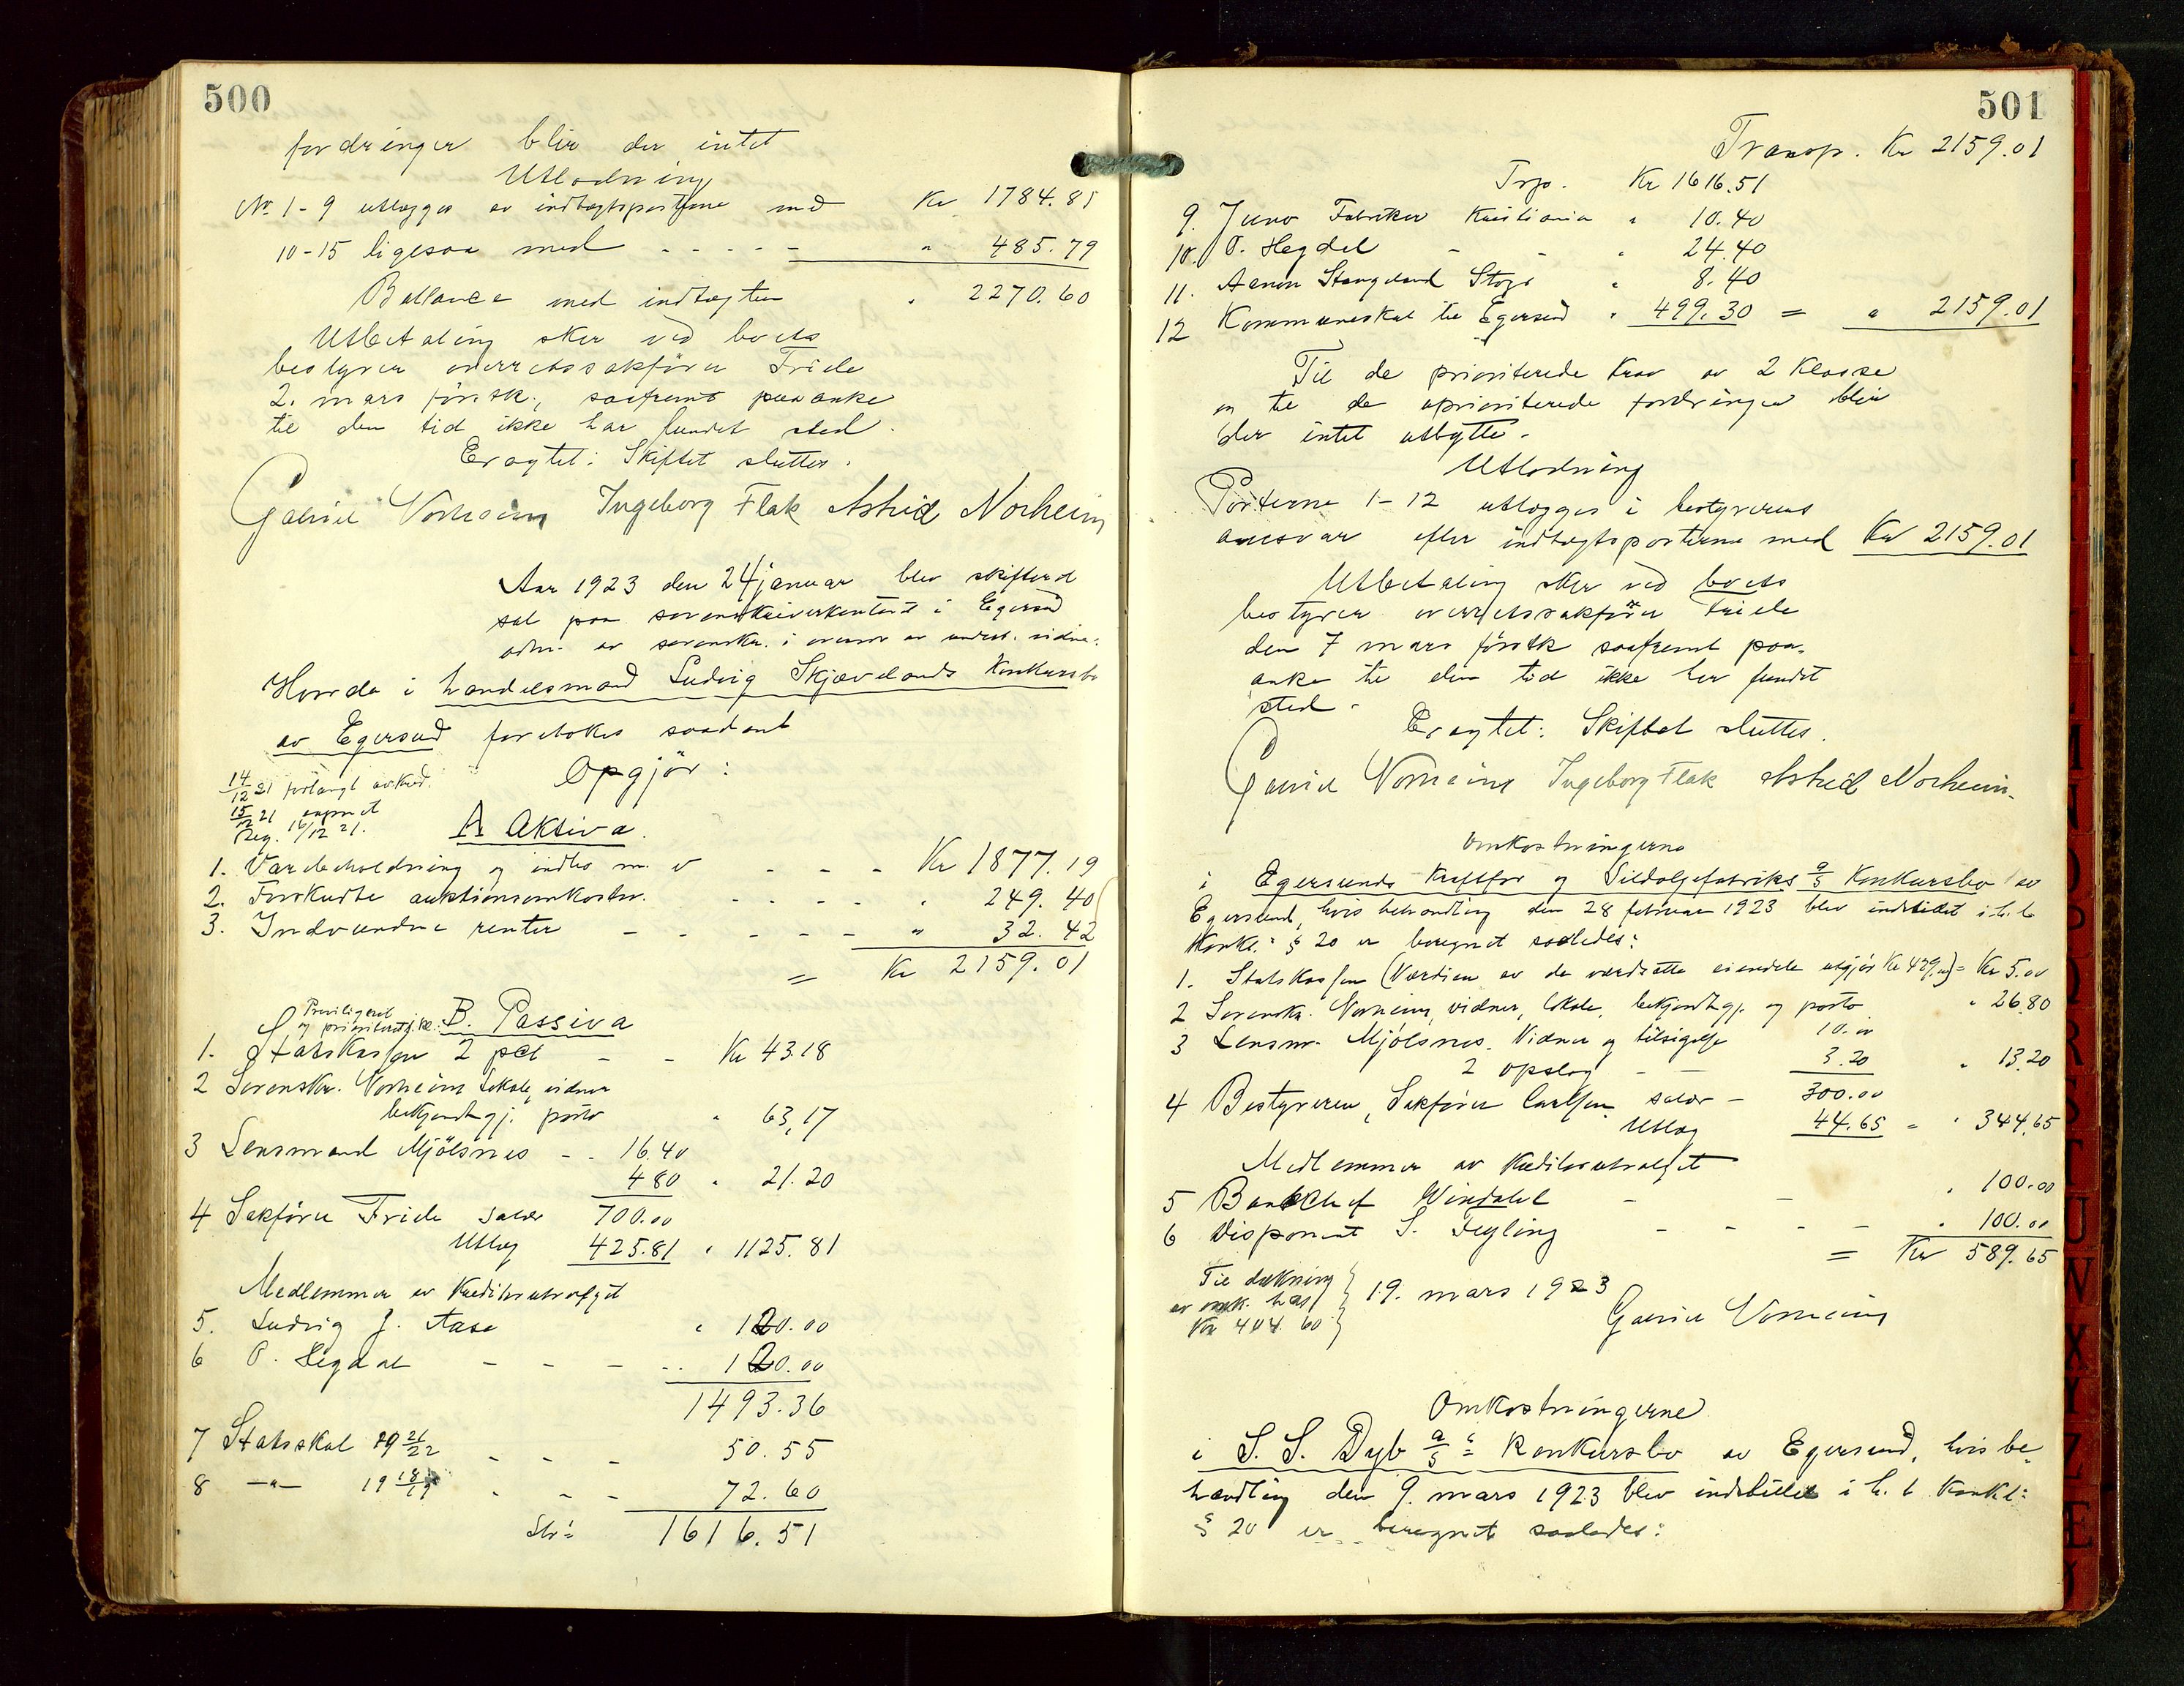 500
fordringer blir der intet
Utlodning
No. 1-9 utlægges av indtægtsposterne med Kr 1784.81
10-15 ligesaa med - - - - - " 485.79
Ballance med indtægten " 2270.60
Utbetaling sker ved boets
bestyrer overretssakfører Friele
2. mars førstk., saafremt paaanke
til den tid ikke har fundet sted.
Eragtet: Skiftet sluttes.
Gabriel Norheim Ingeborg Flak Astrid Norheim
Aar 1923 den 24 januar blev skifteret
sat paa sorenskriverkontoret i Egersund
adm. av sorenskr. i overvær av undert. vidne:
Hvorda i handelsmand Ludvig Skjævelands Konkursbo
av Egersund foretokes saadant
Opgjør:
14/12 21 forlangt avkred.
15/12 21
Reg. 16/12 21.
A Aktiva.
1. Varebeholdning og indbo m. v - - - Kr 1877.19
2. Forskudte auktionsomkostn. - - - - " 249.40
3. Indvundne renter - - - - - " 32.42
= Kr 2159.01
Priviligeret
og prioritert kl.: B. Passiva
1. Statskassen 2 pct - - Kr 43.18
2 Sorenskr. Norheim Lokale, vidner
bekjendtgj. porto " 63,17
3 Lensmand Mjølsnes - - 16.40
480 " 21.20
4 Sakfører Friele salær 700.00
Utlæg 425.81 " 1125.81
Medlemmer av Kreditorutvalget
5. Ludvig J. Aase " 120.00
6 P. Hegdal - - - - . . 120.00
1493.36
7 Statsskat 19 21/22 - - - 50.55
8 -"- 19 18/19 - - - 72.60
1616.51
501
Transp. Kr 2159.01
Trsp. Kr 1616.51
9. Juno Fabriker Kristiania " 10.40
10. P. Hegdal - - " 24.40
11. Stangeland " 8.40
12 Kommuneskat til Egersund " 499.30 = " 2159.01
Til de prioriterede krav av 2 Klasse
og til de uprioriterede fordringer blir
der intet utbytte.
Utlodning
Posterne 1-12 utlægges i bestyrerens
ansvar efter indtægtsposterne med Kr 2159.01
Utbetaling sker ved boets
bestyrer overretssakfører Friele
den 7 mars førstk saafremt paa-
anke til den tid ikke har fundet
sted.
Eragtet: Skiftet sluttes.
Gabriel Norheim Ingeborg Flak Astrid Norheim.
Omkostningerne
i Egersunds Kraftfor og Sildoljefabriks a/s Konkursbo av
Egersund, hvis behandling den 28 februar 1923 blev indstillet i h. t.
Konkl: § 20 er beregnet saaledes:
1. Statskassen (Værdien av de værdsatte eiendele utgjør Kr 479.00) = Kr 5.00
2 Sorenskr. Norheim, vidner, lokale, bekjendtgj. og porto " 26.80
3 Lensm. Mjølsnes. Vidner og tilsigelse 10.00
2 opslag - - 3.20 " 13.20
4 Bestyreren, Sakfører Carlsen salær - 300.00
Utlæg 44.65 = " 344.65
Medlemmer av Kreditorutvalget
5 Bankchef Windahl - - " 100.00
6 Disponent S. Feyling - - - - " 100.00
= Kr 589.65
Til dækning
av omk. has
Kr 404.60
19. mars 1923
Gabriel Norheim
Omkostningerne
i S. S. Dyb a/s : Konkursbo av Egersund, hvis be-
handling den 9. mars 1923 blev indstillet i h. t Konkl:
§ 20 er beregnet saaledes: